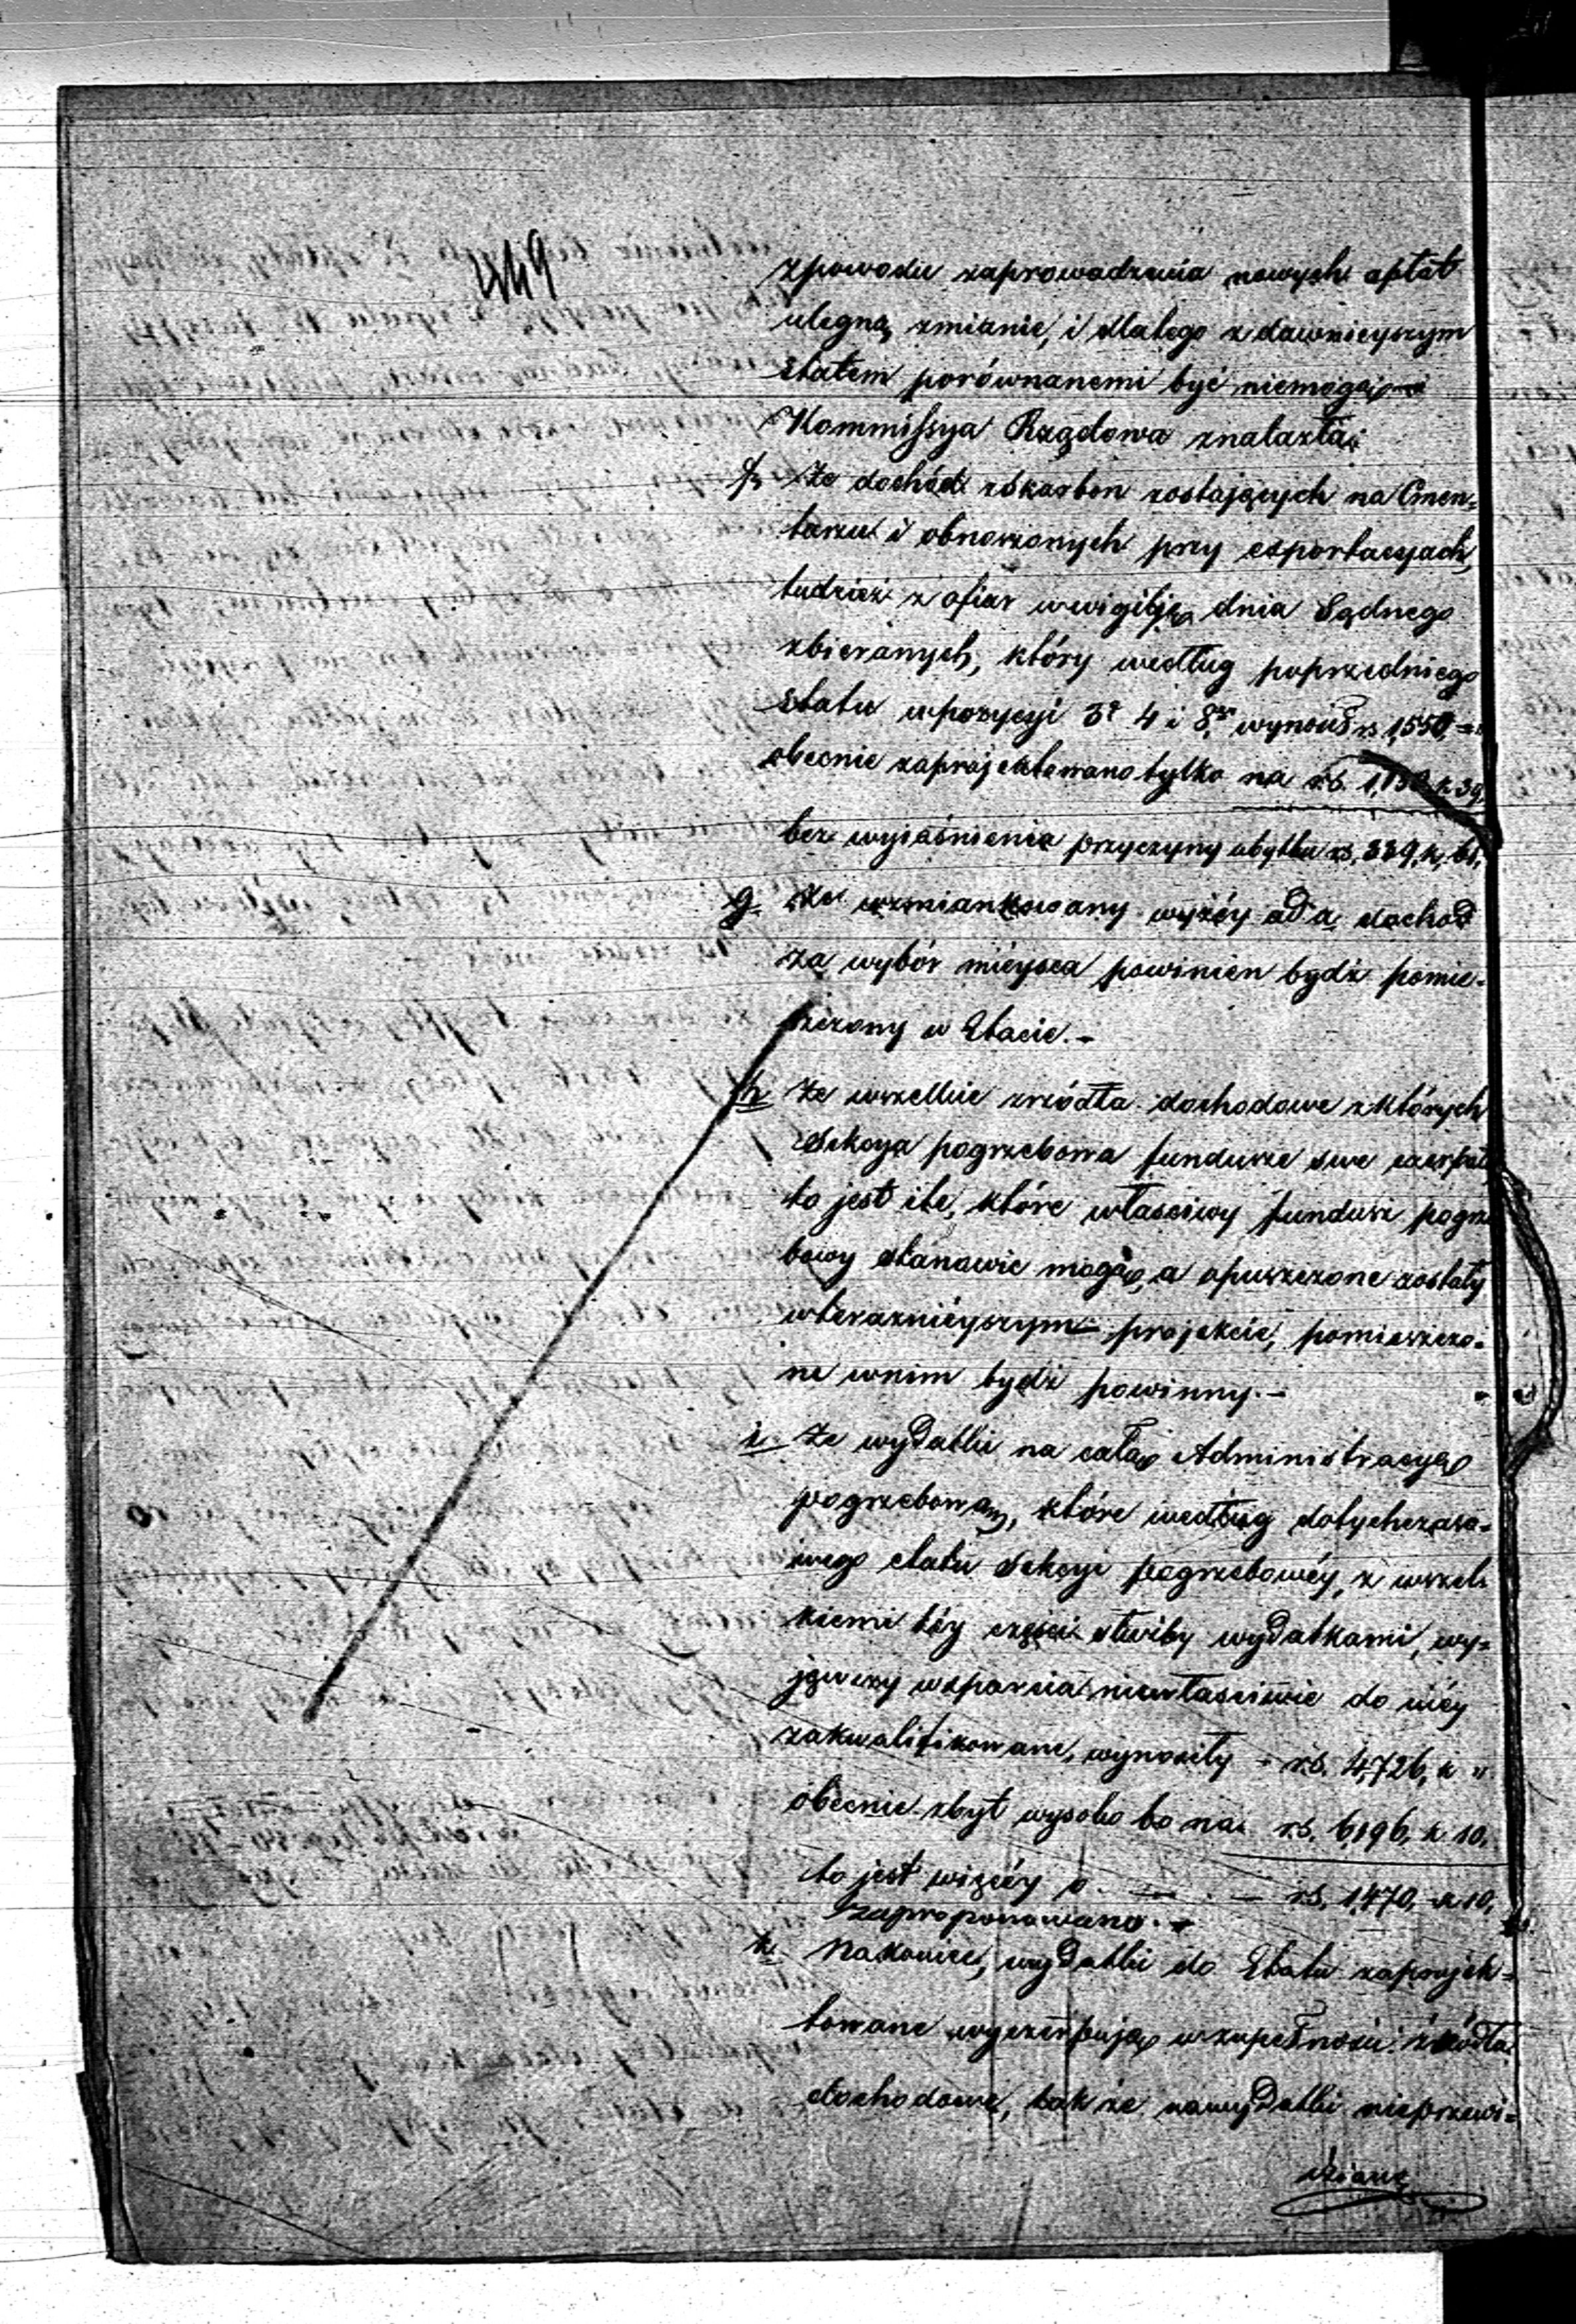 449
zpowodu zaprowadzenia nowych opłat
ulegną zmianie, i dlatego z dawnieyszym
etatem porównanemi być niemogą
Kommissya Rządowa znalazła:
f. że dochód zskarbon zostających na Cmen=
tarzu i obnoszonych przy exportacyach,
tudzież z ofiar wwigilją dnia Sądnego
zbieranych, który według poprzedniego
etatu wpozycyi 3º 4 i 8. wynosił rs 1,550,
obecnie zaprojektowano tylko na rs. k 39,
bez wyiaśnienia przyczyny ubytku rs, 339, k, 61,
g. że wzmiankowany wyżéy ad a dochód
za wybór mieysca powinien bydź pomie=
szczony w Etacie. –
h że wszelkie zrzódła dochodowe z których
Sekcya pogrzebowa fundusze swe czerpała
to jest ile, które właściwy fundusz pogrze
bowy stanowić mogą, a opuszczone zostały
wterazniéyszym projekcie, pomieszczo=
ne wnim bydź powinny. –
i. że wydatki na całą Administracyą
pogrzebową, które według dotychczaso=
wego etatu Sekcyi pogrzebowéy, z wszel=
kiemi téy części służby wydatkami, wy=
jąwszy wsparcia niewłaściwie do niéy
zakwalifikowane, wynosiły – rs. 4,726, k "
obecnie zbyt wysoko bo na rs. 6196, k 10.
to jest więcéy o – – rs. 1,470, k 10,
zaproponowano. –
k Nakoniec, wydatki do Etatu zaprojek=
towane wyczerpują wzupełności źródła
dochodowe, tak że nawydatki nieprzewi=
dziane